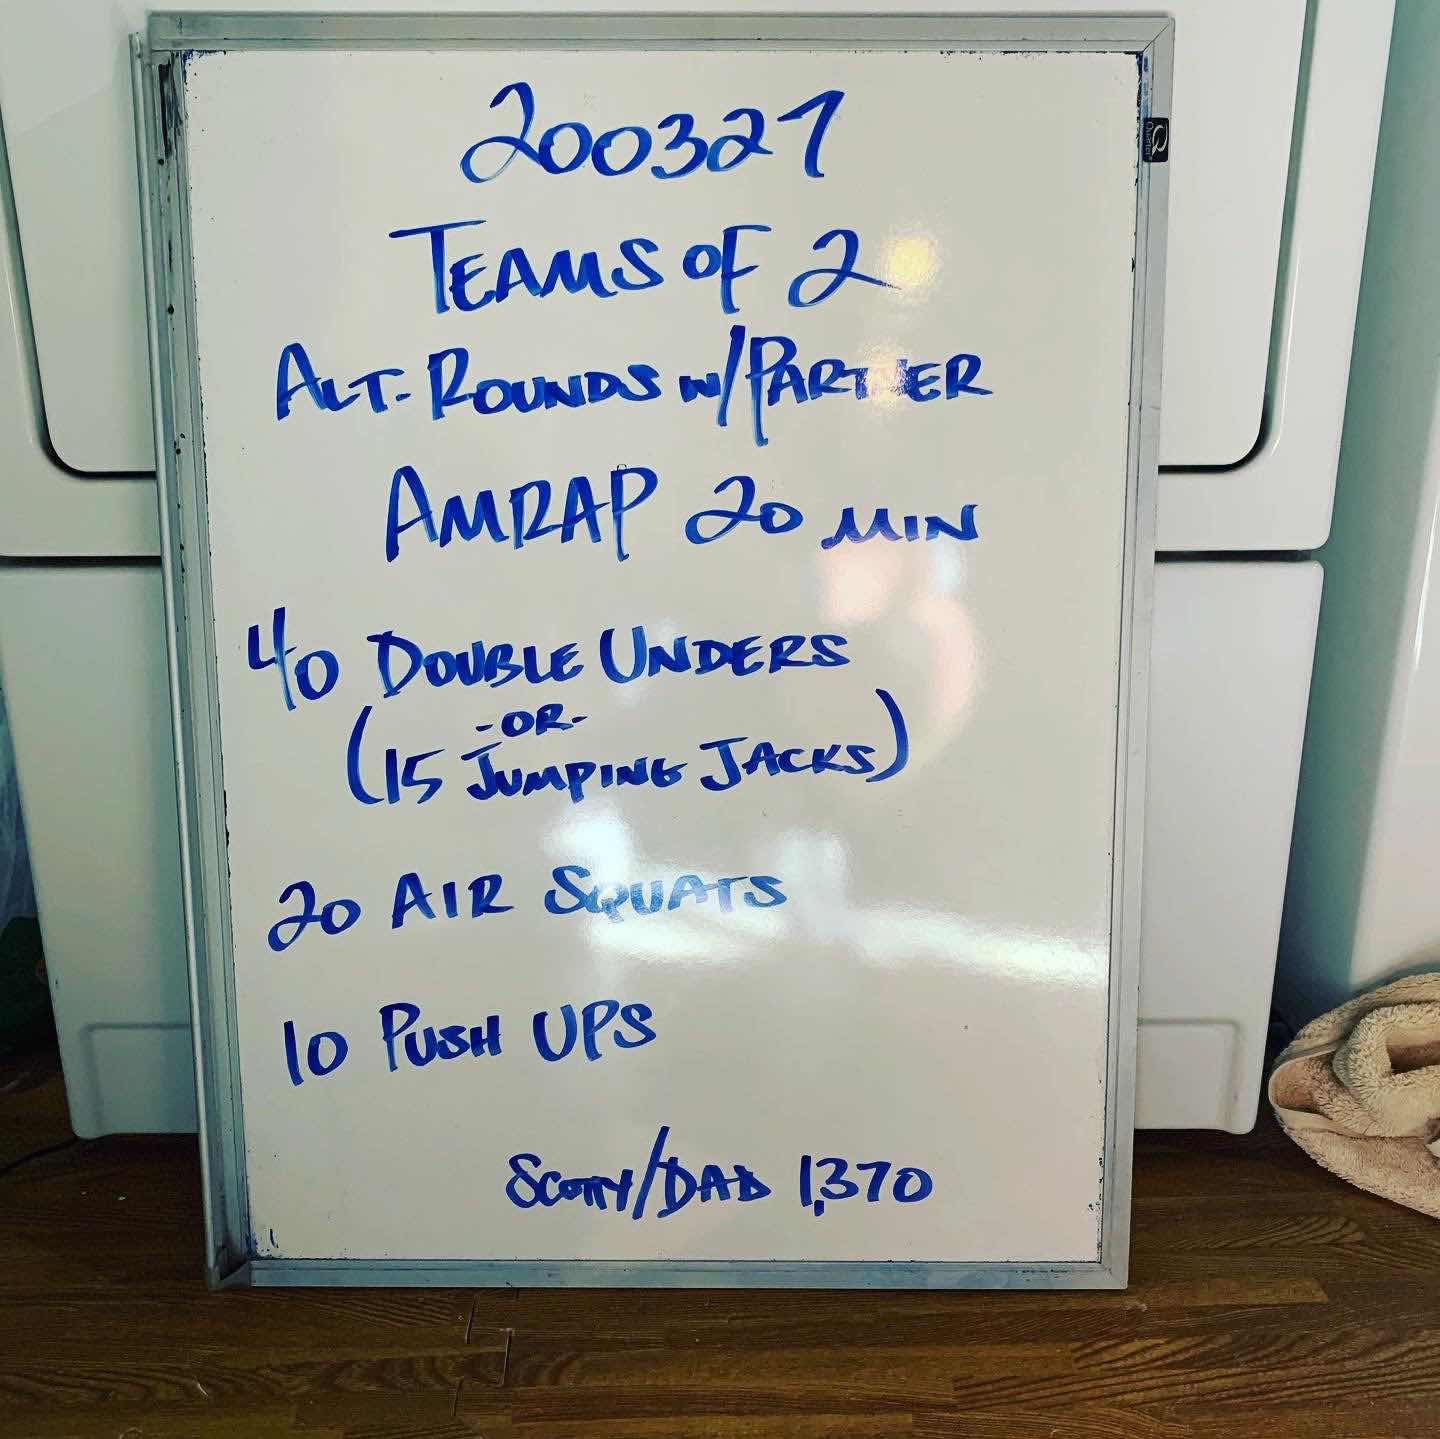 200327
TEAMS OF 2
ALT. ROUNDS w/PARTNER
AMRAP 20 MIN
40 DOUBLE UNDERS
-OR-
(15 JUMPING JACKS)
20 AIR SQUATS
10 PUSH UPS
SCOTTY/DAD 1,370
Quartet